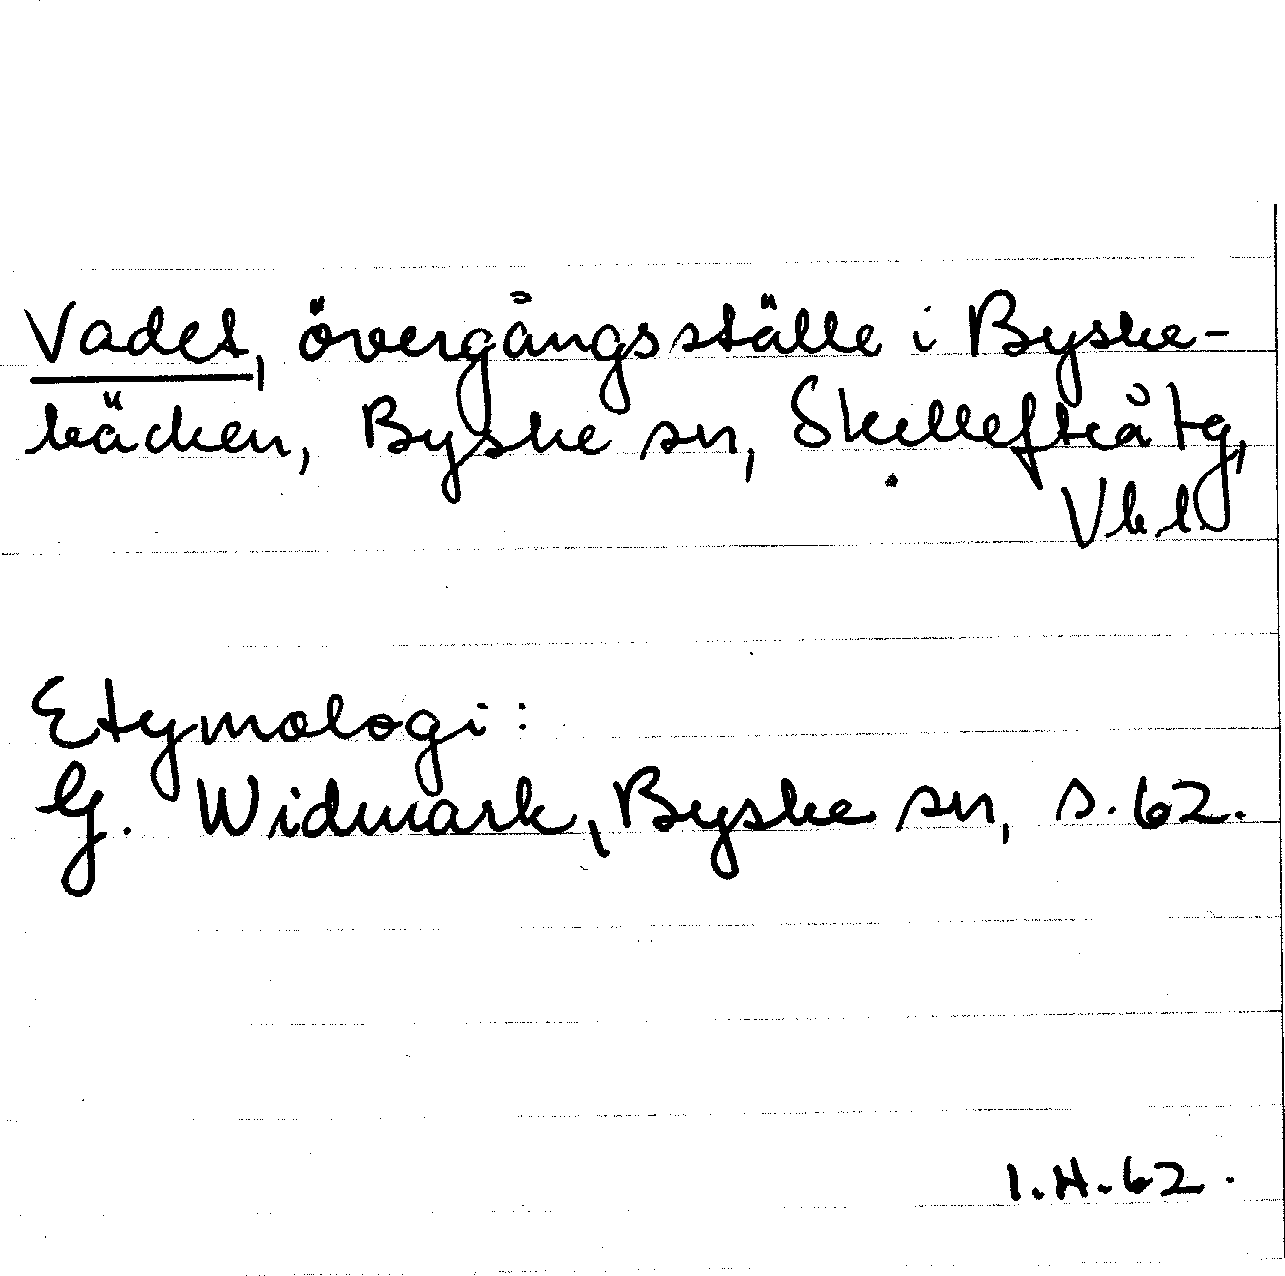 Vadet, övergångsställe i Byske-
bäcken, Byske sn, Skellefteå tg,
Vbl.
Etymologi:
G. Widmark, Byske sn, s. 62.
I.H.62.